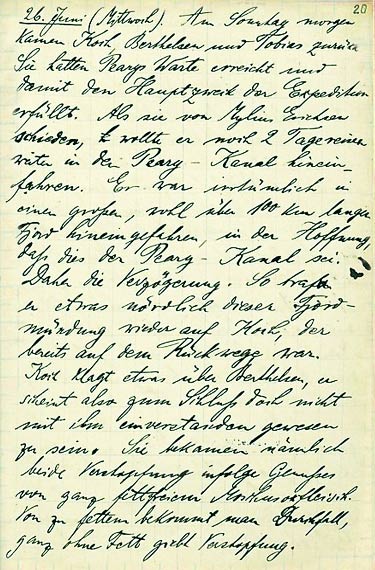 20
26. Juni (Mittwoch). Am Sonntag morgen
kamen Koch, Berthelsen und Tobias zurück.
Sie hatten Pearys Warte erreicht und
damit den Hauptzweck der Expedition
erfüllt. Als sie von Mylius Erichsen
schieden, wollte er noch 2 Tagereisen
weiter in den Peary-Kanal hinein-
fahren. Er war irrtümlich in
einen großen, wohl über 100 km langen
Fjord hineingefahren, in der Hoffnung,
daß dies der Peary-Kanal sei.
Daher die Verzögerung. So traf
er etwas nördlich dieser Fjord-
mündung wieder auf Koch, der
bereits auf dem Rückwege war.
Koch klagt etwas über Berthelsen, er
scheint also zum Schluß doch nicht
mit ihm einverstanden gewesen
zu sein. Sie bekamen nämlich
beide Verstopfung infolge Genußes
von ganz fettfreiem Moschusochsfleisch.
Von zu fettem bekommt man Durchfall,
ganz ohne Fett giebt Verstopfung.